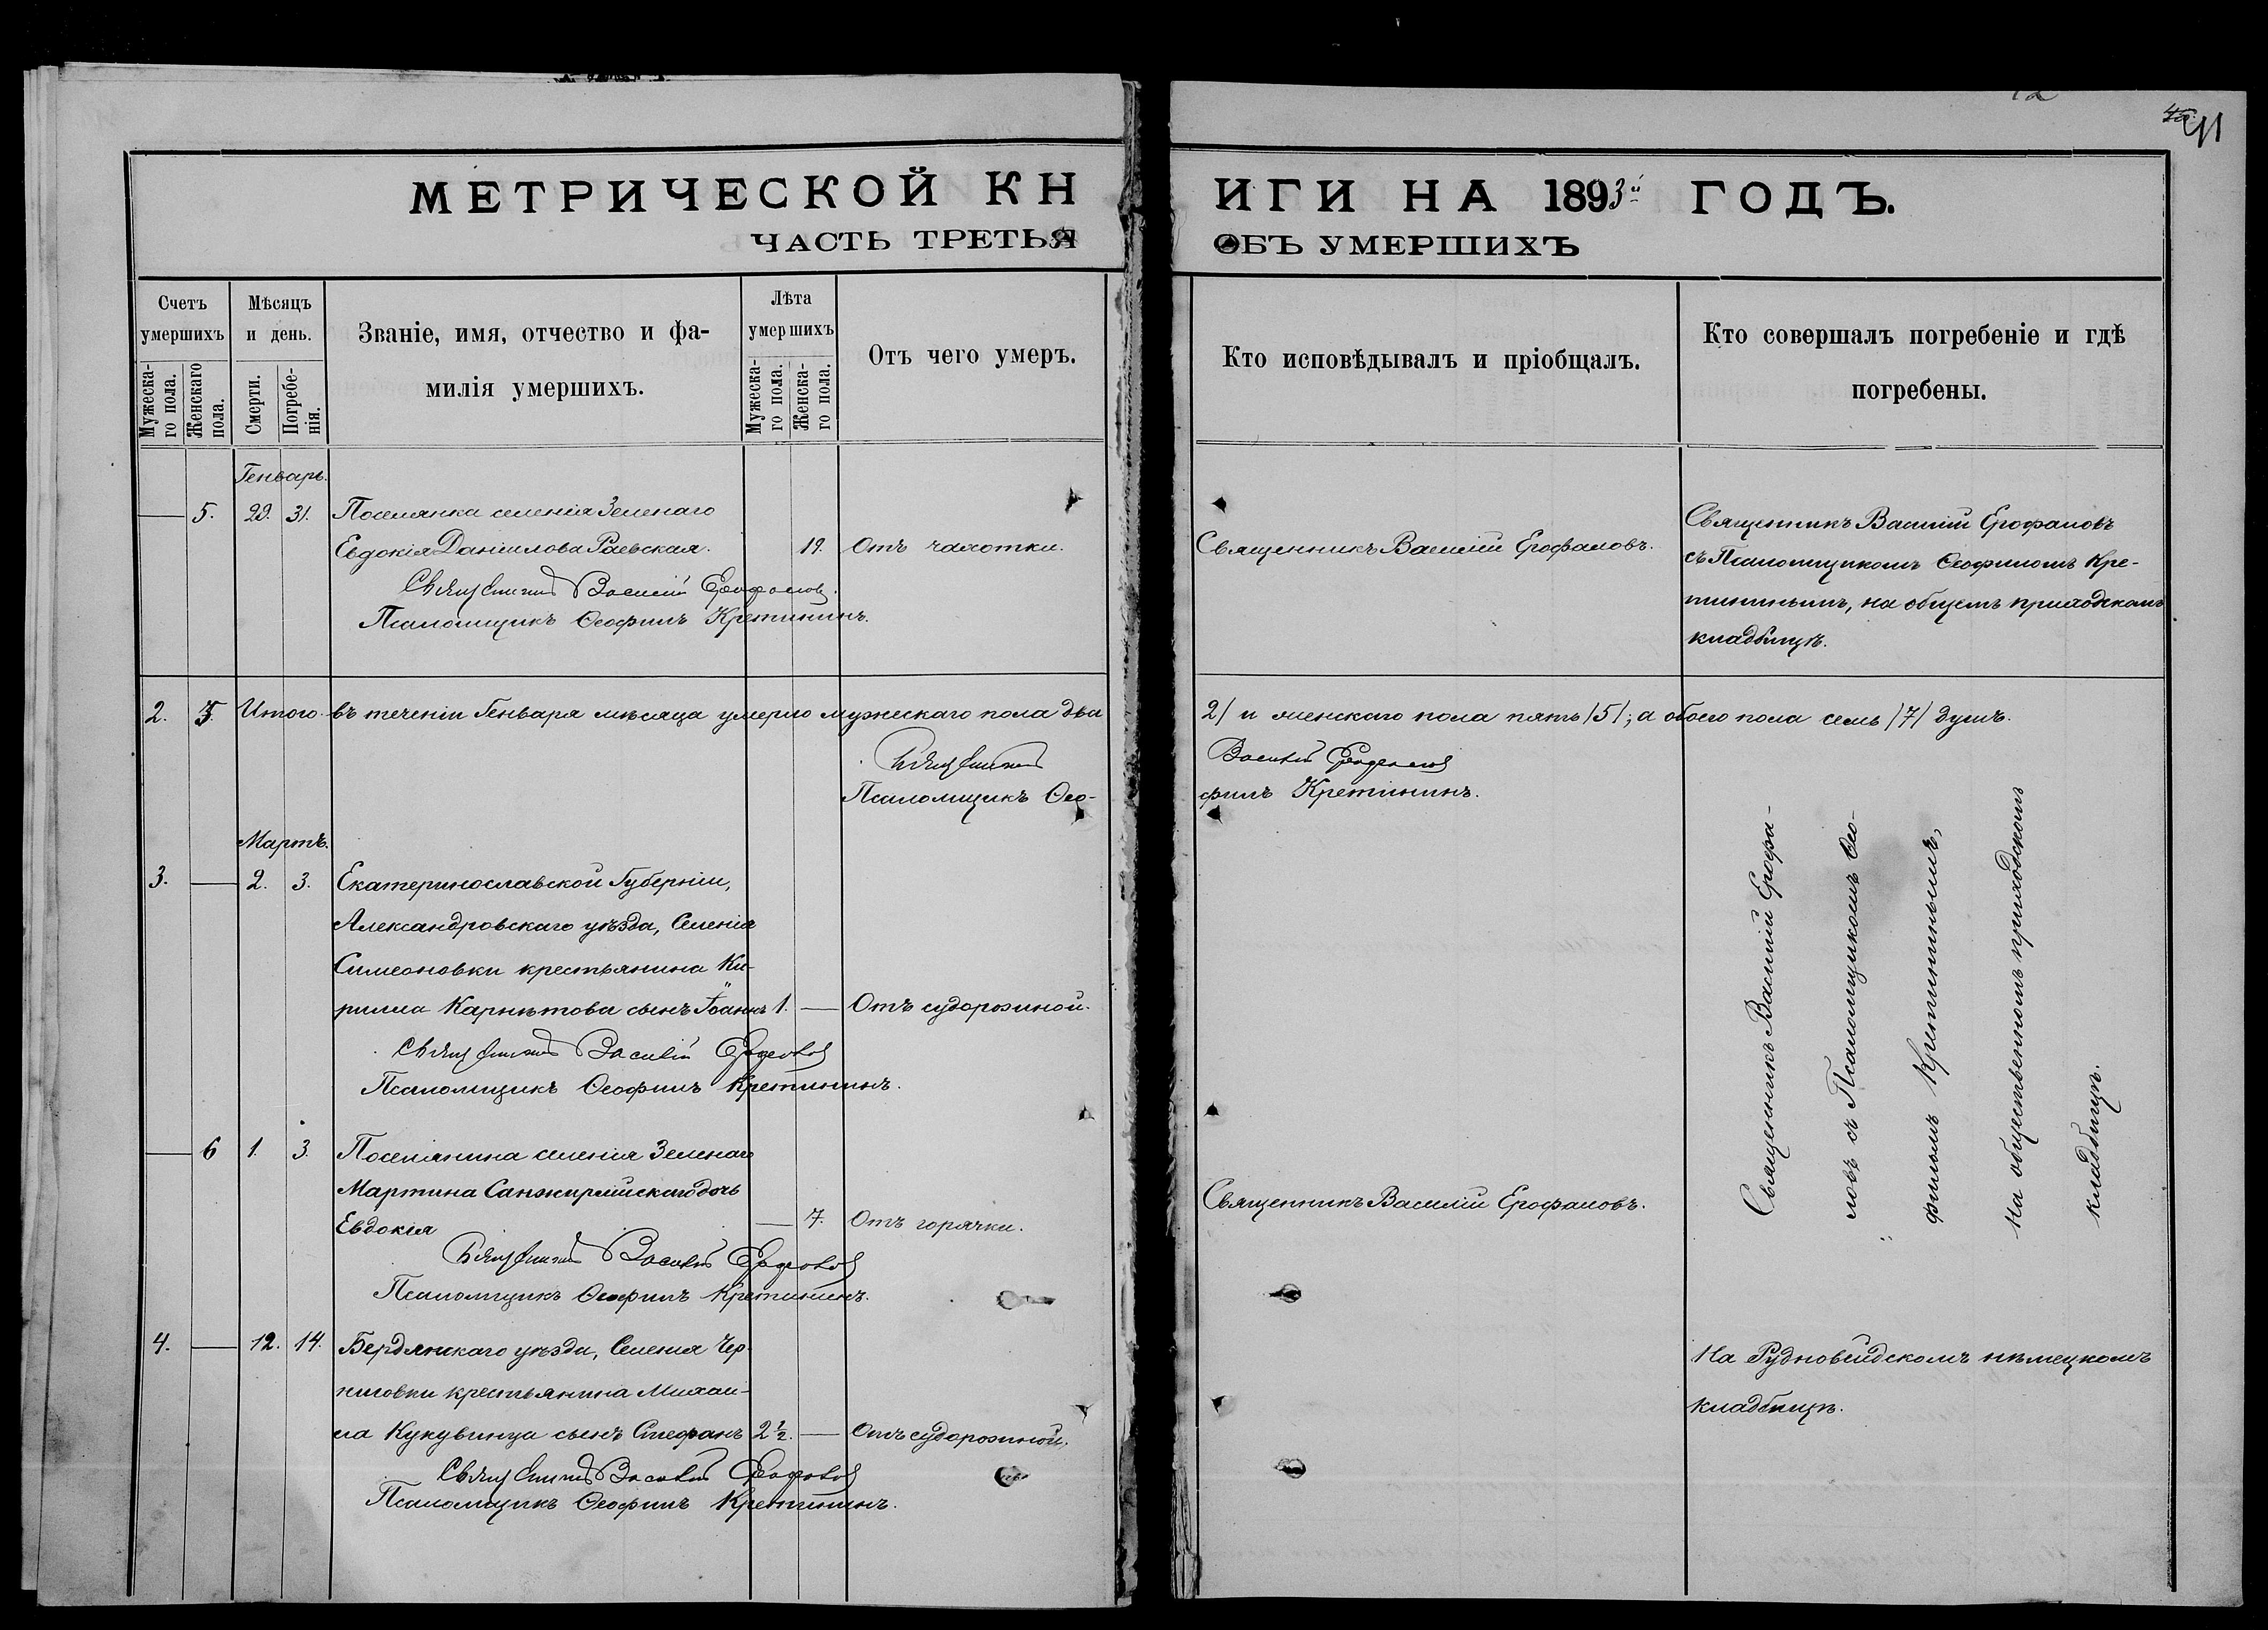 41
МЕТРИЧЕСКОЙ КНИГИ НА 1893й ГОДЪ.
ЧАСТЬ ТРЕТЬЯ ОБЪ УМЕРШИХЪ
Счетъ умершихъ
Мужеска-го пола.
Женскаго пола.
Мѣсяцъ и день.
Смерти.
Погребе-нія.
Званіе, имя, отчество и фа-
милія умершихъ.
Лѣта умершихъ
Мужеска-го пола.
Женска-го пола.
Отъ чего умеръ.
Кто исповѣдывалъ и пріобщалъ.
Кто совершалъ погребеніе и гдѣ
погребены.
Генварь.
5. 29. 31. Поселянка селенія Зеленаго
Евдокія Даніилова Раевская. 19. Отъ чахотки.
Священникъ Василій Ерофаловъ
Псаломщикъ Ѳеофилъ Кретининъ.
Священникъ Василій Ерофаловъ.
Священникъ Василій Ерофаловъ
съ Псаломщикомъ Ѳеофиломъ Кре-
тининымъ, на общемъ приходскомъ
кладбищѣ.
2. 5. Итого въ теченіи Генваря мѣсяца умерло мужескаго пола два
2/ и женскаго пола пять /5/; а обоего пола семь /7/ душъ.
Священникъ Василій Ерофаловъ
Псаломщикъ Ѳео-
филъ Кретининъ.
Мартъ.
3. — 2. 3. Екатеринославской Губерніи,
Александровскаго уѣзда, Селенія
Симеоновки крестьянина Ки-
рилла Карнѣтова сынъ Іоаннъ 1. — Отъ судорожной.
Священникъ Василій Ерофаловъ
Псаломщикъ Ѳеофилъ Кретининъ.
— 6 1. 3. Поселянина селенія Зеленаго
Мартина Санжирлійскаго дочь
Евдокія — 7. Отъ горячки.
Священникъ Василій Ерофаловъ
Псаломщикъ Ѳеофилъ Кретининъ.
Священникъ Василій Ерофаловъ.
Священникъ Василій Ерофа-
ловъ съ Псаломщикомъ Ѳео-
филомъ Кретининымъ,
на общественномъ приходскомъ
кладбищѣ.
4. — 12. 14. Бердянскаго уѣзда, Селенія Чер-
ниговки крестьянина Михаи-
ла Кукувинца сынъ Стефанъ 2 1/2. — Отъ судорожной.
Священникъ Василій Ерофаловъ
Псаломщикъ Ѳеофилъ Кретининъ.
На Рудновейдскомъ нѣмецкомъ
кладбищѣ.